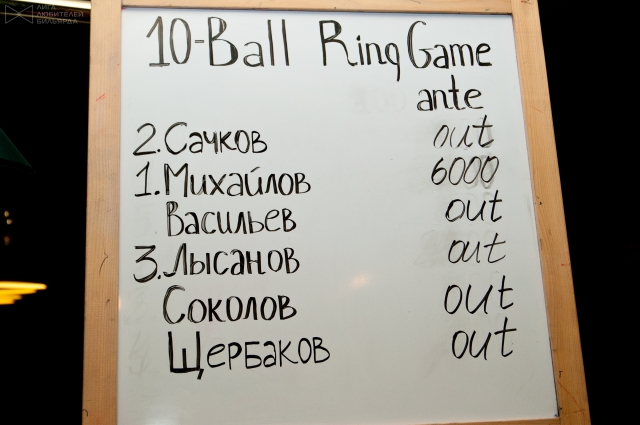 ЛИГА
ЛЮБИТЕЛЕЙ
БИЛЬЯРДА
10-Ball Ring Game
ante
2. Сачков out
1. Михайлов 6000
Васильев out
3. Лысанов out
Соколов out
Щербаков out